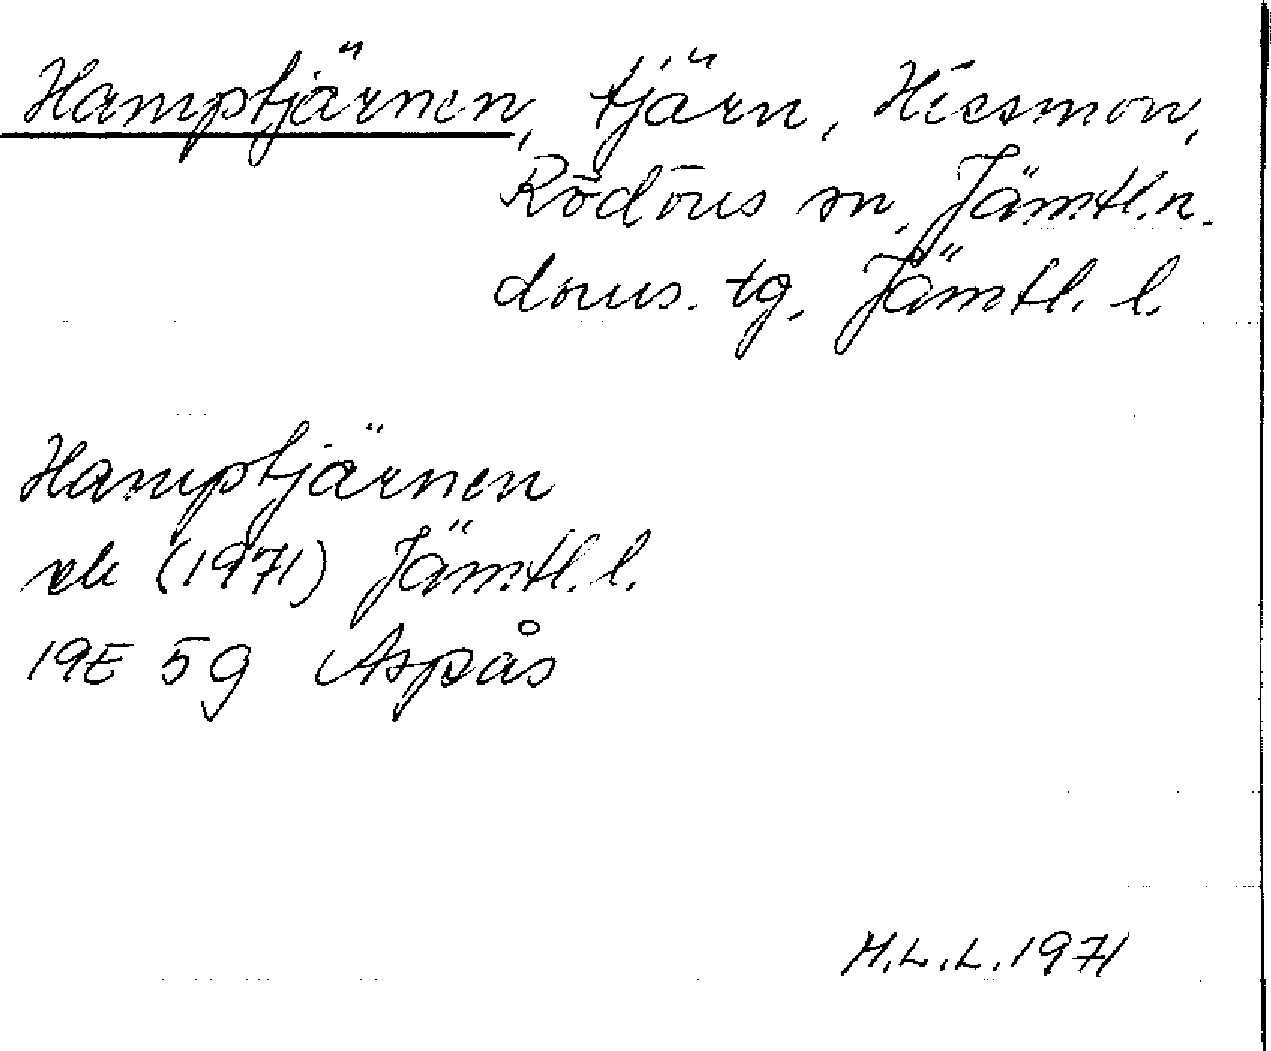 Hamptjärnen, tjärn, Hissmon,
Rödöns sn, Jämtl.n.
doms. tg, Jämtl. l.
Hamptjärnen
ek (1971) Jämtl. l.
19E 5g Aspås
H.L.L. 1971